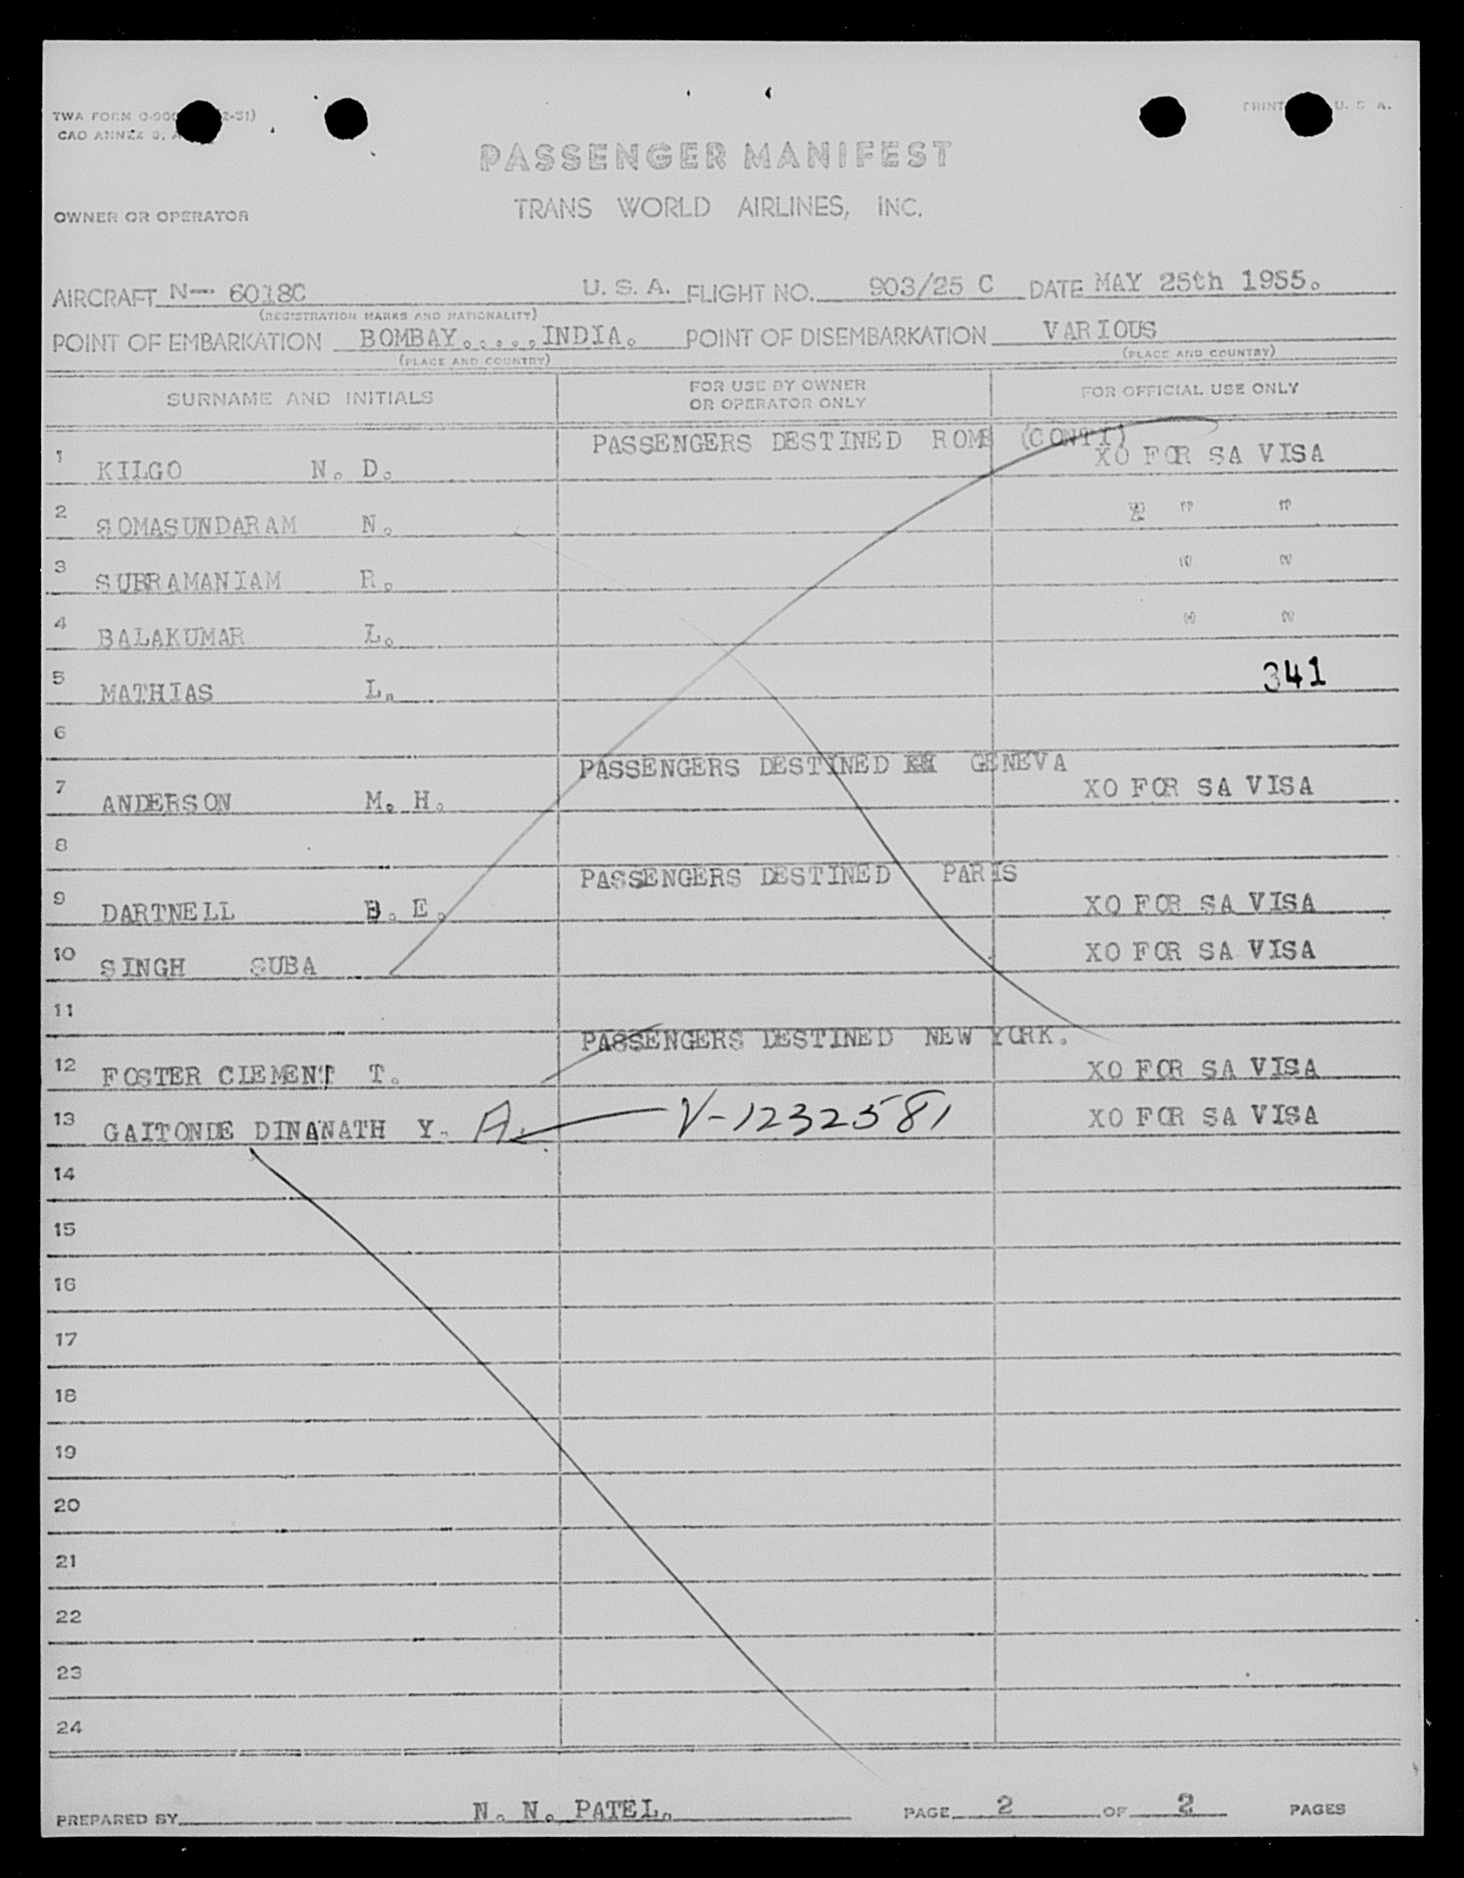 TWA FORM
PRINT U. S. A.
CAO ANNEX 9, A
PASSENGER MANIFEST
OWNER OR OPERATOR
TRANS WORLD AIRLINES, INC.
AIRCRAFT N-- 6018C U. S. A. FLIGHT NO. 903/25 C DATE MAY 25th 1955.
(REGISTRATION MARKS AND NATIONALITY)
POINT OF EMBARKATION BOMBAY.....INDIA. POINT OF DISEMBARKATION VARIOUS
(PLACE AND COUNTRY) (PLACE AND COUNTRY)
SURNAME AND INITIALS FOR USE BY OWNER OR OPERATOR ONLY FOR OFFICIAL USE ONLY
PASSENGERS DESTINED ROME (CONTI)
1 KILGO N. D. XO FOR SA VISA
2 SOMASUNDARAM N. " "
3 SUBRAMANIAM R. " "
4 BALAKUMAR L. " "
5 MATHIAS L. 341
6
PASSENGERS DESTINED GENEVA
7 ANDERSON M. H. XO FOR SA VISA
8
PASSENGERS DESTINED PARIS
9 DARTNELL B. E. XO FOR SA VISA
10 SINGH SUBA XO FOR SA VISA
11
PASSENGERS DESTINED NEW YORK.
12 FOSTER CLEMENT T. XO FOR SA VISA
13 GAITONDE DINANATH Y. A. V-1232581 XO FOR SA VISA
14
15
16
17
18
19
20
21
22
23
24
PREPARED BY N. N. PATEL. PAGE 2 OF 2 PAGES